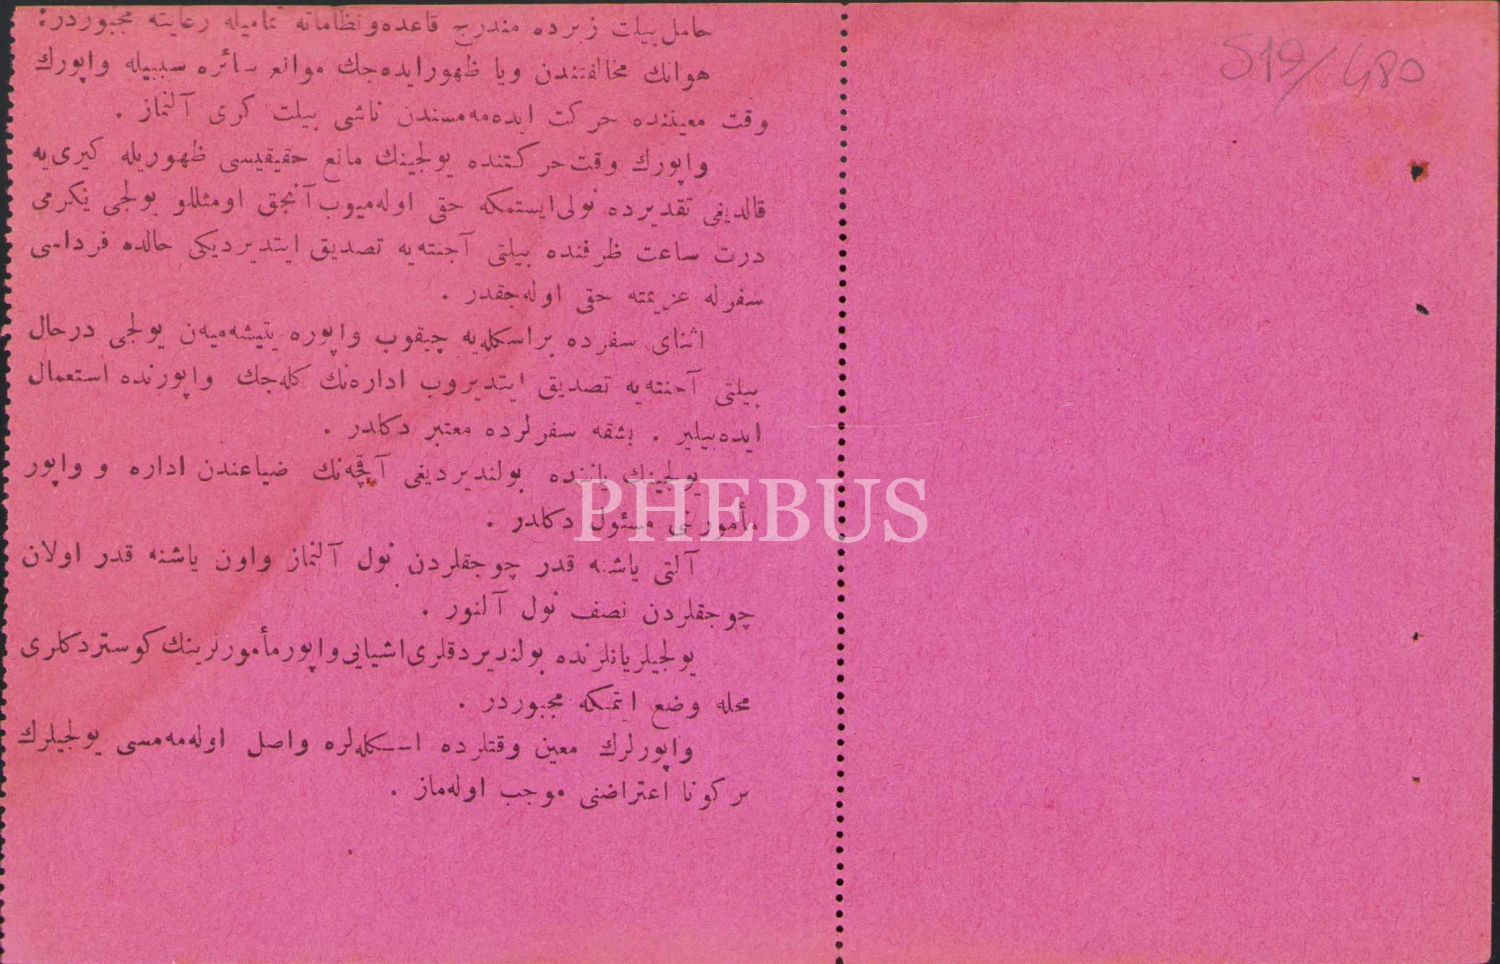 حامل بیلت زیرده مندرج قاعده و نظاماته تمامیله رعایته مجبوردر:
هوانك مخالفتندن ویا ظهور ایده‌جك موانع سائره سببیله واپورك
وقت معیننده حرکت ایده‌مه‌مسندن ناشی بیلت کری آلنماز .
واپورك وقت حرکتنده یولجینك مانع حقیقیسی ظهوریله کیری‌یه
قالدیغی تقدیرده نولی ایستمکه حقی اوله‌میوب آنجق اومثللو یولجی یکرمی
درت ساعت ظرفنده بیلتی آجنته‌یه تصدیق ایتدیردیکی حالده فرداسی
سفرله عزیمته حقی اوله‌جقدر .
اثنای سفرده بر اسکله‌یه چیقوب واپوره یتیشه‌میه‌ن یولجی درحال
بیلتی آجنته‌یه تصدیق ایتدیروب اداره‌نك کله‌جك واپورنده استعمال
ایده‌بیلیر . بشقه سفرلرده معتبر دکلدر .
یولجینك یاننده بولندیردیغی آقچه‌نك ضیاعندن اداره و واپور
مأمورینی مسئول دکلدر .
آلتی یاشنه قدر چوجقلردن نول آلنماز واون یاشنه قدر اولان
چوجقلردن نصف نول آلنور .
یولجیلر یانلرنده بولندیردقلری اشیایی واپور مأمورلرینك کوستردکلری
محله وضع ایتمکه مجبوردر .
واپورلرك معین وقتلرده اسکله‌لره واصل اوله‌مه‌مسی یولجیلرك
بر کونا اعتراضنی موجب اوله‌ماز .
519/480
PHEBUS